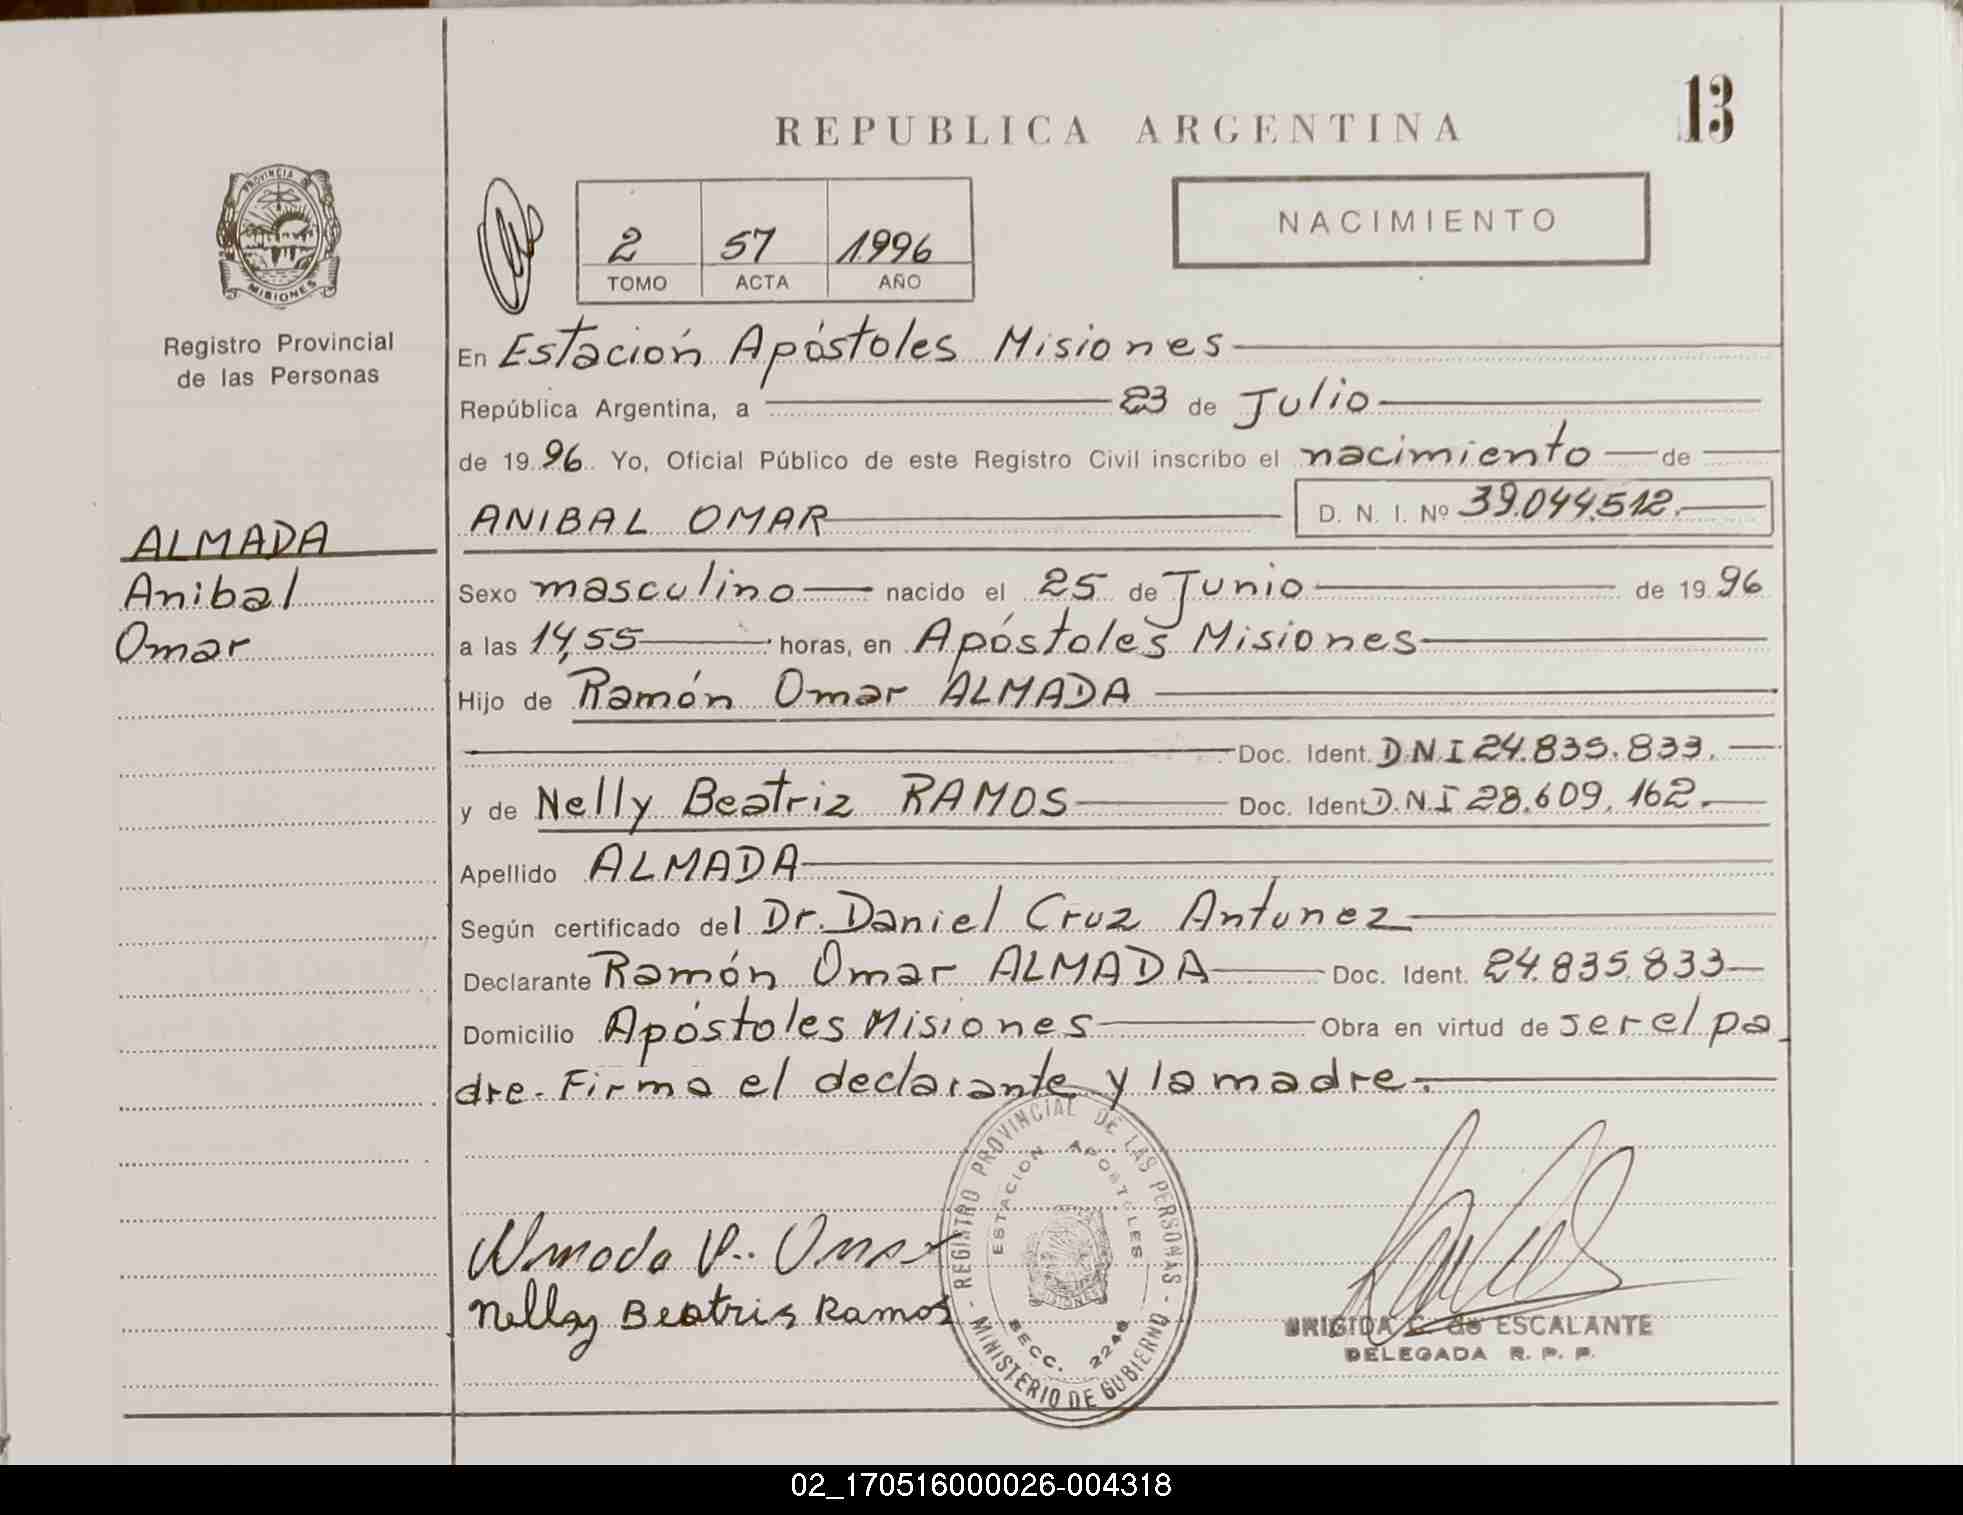 13
REPUBLICA ARGENTINA
NACIMIENTO
2 57 1996
TOMO ACTA AÑO
PROVINCIA DE MISIONES
Registro Provincial
de las Personas
ALMADA
Anibal
Omar
En Estación Apóstoles Misiones
República Argentina, a 23 de Julio
de 1996. Yo, Oficial Público de este Registro Civil inscribo el nacimiento de
ANIBAL OMAR D. N. I. Nº 39.044.512.
Sexo masculino nacido el 25 de Junio de 1996
a las 14,55 horas, en Apóstoles Misiones
Hijo de Ramón Omar ALMADA
Doc. Ident. DNI 24.835.833.
y de Nelly Beatriz RAMOS Doc. Ident D.N.I 28.609.162.
Apellido ALMADA
Según certificado del Dr. Daniel Cruz Antunez
Declarante Ramón Omar ALMADA Doc. Ident. 24.835.833
Domicilio Apóstoles Misiones Obra en virtud de ser el pa
dre. Firma el declarante y la madre.
Almada Omar
Nelly Beatris Ramos
REGISTRO PROVINCIAL DE LAS PERSONAS - MINISTERIO DE GOBIERNO -
ESTACION APOSTOLES
SECC. 2246
MISIONES
BRIGIDA C. de ESCALANTE
DELEGADA R. P. P.
02_170516000026-004318